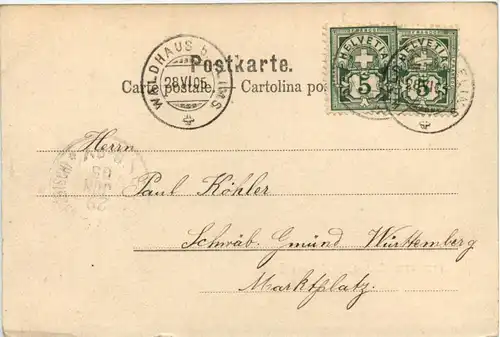 Postkarte.
Carte postale. — Cartolina
WALDHAUS b. FLIMS
28.VI.05
HELVETIA HELVETIA
FRANCO
5 5
Herrn
Paul Köhler
Schwäb. Gmünd Württemberg
Marktplatz.